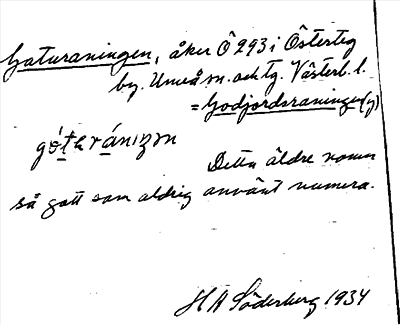 Gaturaningen, åker Ö 293 i Österteg
by. Umeå sn. och tg. Västerb. l.
= Godjordsraningen(y)
gótkránizm
Detta äldre namn
så gott som aldrig använt numera.
HA Söderberg 1934